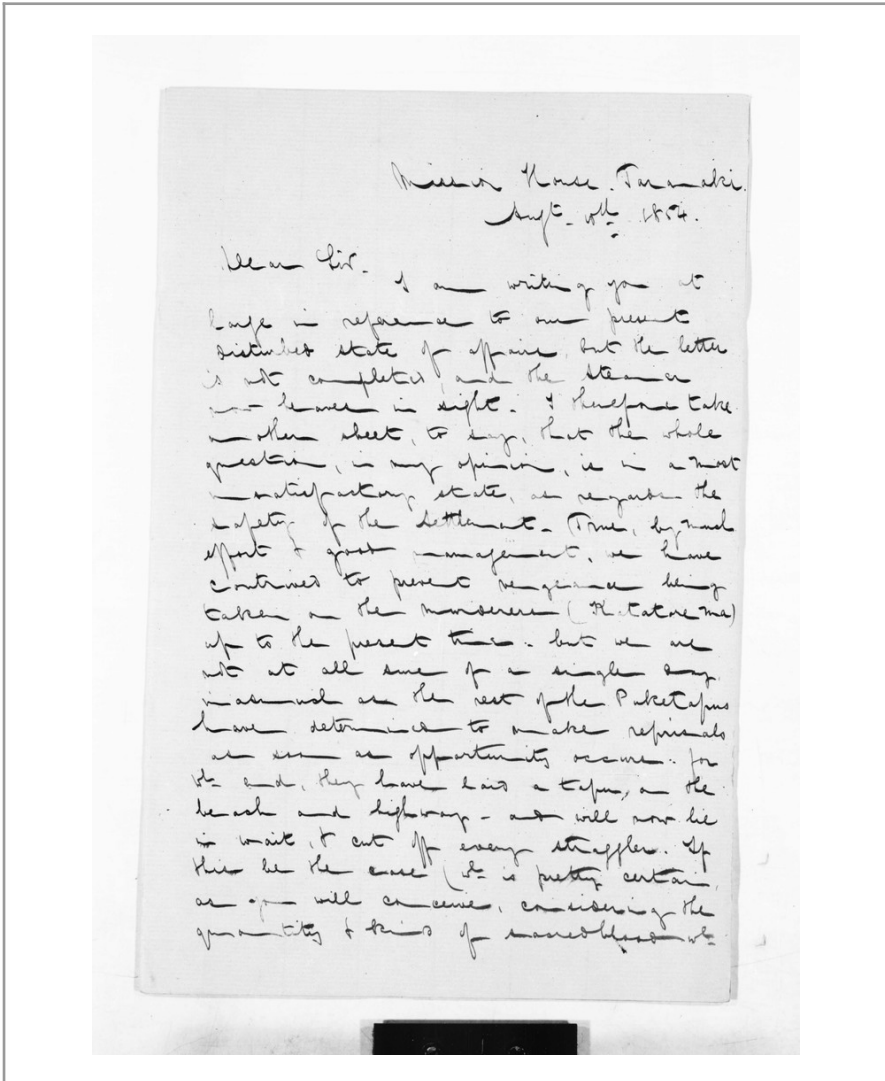 Mission House. Taranaki.
Augt. 1854.
Dear Sir.
I am writing you at
large in reference to our present
disturbed state of affairs, but the letter
is not completed, and the Steamer
heaves in sight. I therefore take
another sheet, to say, that the whole
question, in my opinion, is in a most
unsatisfactory state, as regards the
safety of the Settlement. True, by much
effort & good management, we have
contrived to prevent vengeance being
taken on the murderers (Katatore ma)
up to the present time - but we are
not at all sure of a single day,
inasmuch as the rest of the Puketapus
have determined to make reprisals
as soon as opportunity occurs - for
wh end, they have laid a tapu, on the
beach and highway - and will now lie
in wait, & cut off every straggler. If
this be the case (wh is pretty certain,
as you will conceive, considering the
quantity & kind of sacred blood wh